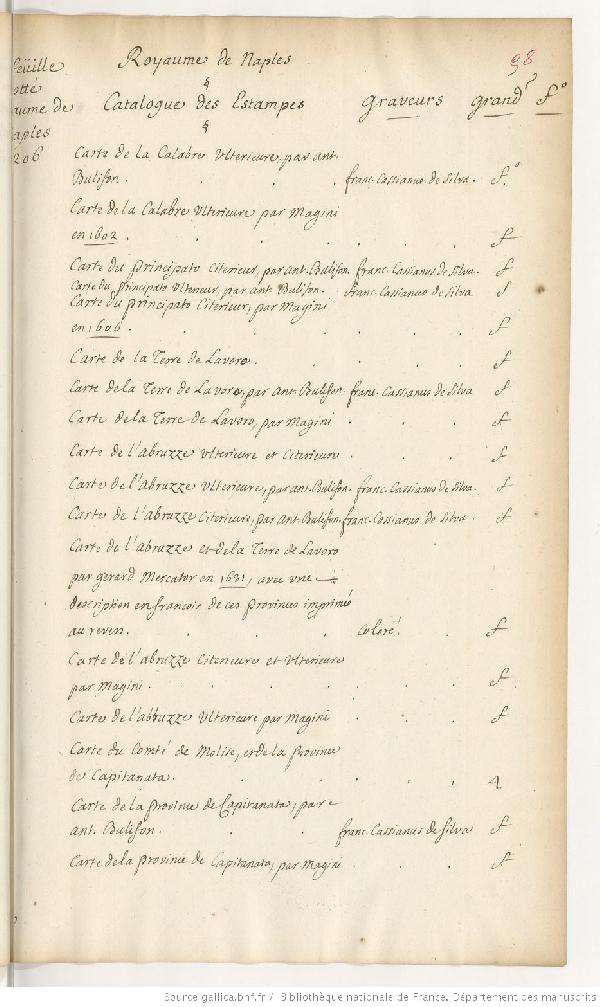 feüille
otté
aume de
aples
206
Royaume de Naples
98
§
Catalogue des Estampes graveurs grand.r f.o
§
Carte de la Calabre Ulterieure, par ant.
Bulifon. . . . franc. Cassianus de Silva. f.o
Carte de la Calabre Ulterieure par Magini
en 1602 . . . . . . f
Carte du principato Citerieur, par ant. Bulifon. franc. Cassianus de Silva. f
Carte du principato Ulterieur, par ant Bulifon. franc. Cassianus de Silva f
Carte du principato Citerieur, par Magini
en 1606 . . . . . . f
Carte de la Terre de Lavoro. . . . f
Carte de la Terre de Lavoro, par ant. Bulifon. franc. Cassianus de Silva f
Carte de la Terre de Lavoro, par Magini . . . f
Carte de l'abruzze Ulterieure et Citerieure . . . f
Carte de l'abruzze Ulterieure, par ant. Bulifon. franc. Cassianus de Silva. f
Carte de l'abruzze Citerieure, par ant. Bulifon. franc. Cassianus de Silva. f
Carte de l'abruzze et de la Terre de Lavoro
par gerard Mercator en 1621, avec une
description en francois de ces provinces imprimée
au revers. . . . Coloré. . f
Carte de l'abruzze Citerieure et Ulterieure
par Magini . . . . . . f
Carte de l'abruzze Ulterieure par Magini . . . f
Carte du Comté de Molise, et de la province
de Capitanata. . . . . . 4
Carte de la province de Capitanata, par
ant. Bulifon. . . . franc. Cassianus de Silva f
Carte de la province de Capitanata, par Magini . . . f
Source gallica.bnf.fr / Bibliothèque nationale de France. Département des manuscrits